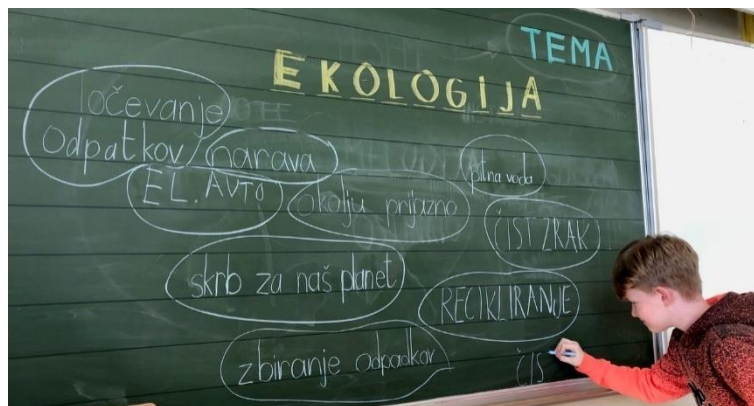 TEMA
EKOLOGIJA
ločevanje
odpatkov
narava
pitna voda
EL. AVTO
okolju prijazno
ČIST ZRAK
skrb za naš planet
RECIKLIRANJE
zbiranje odpadkov
ČIS